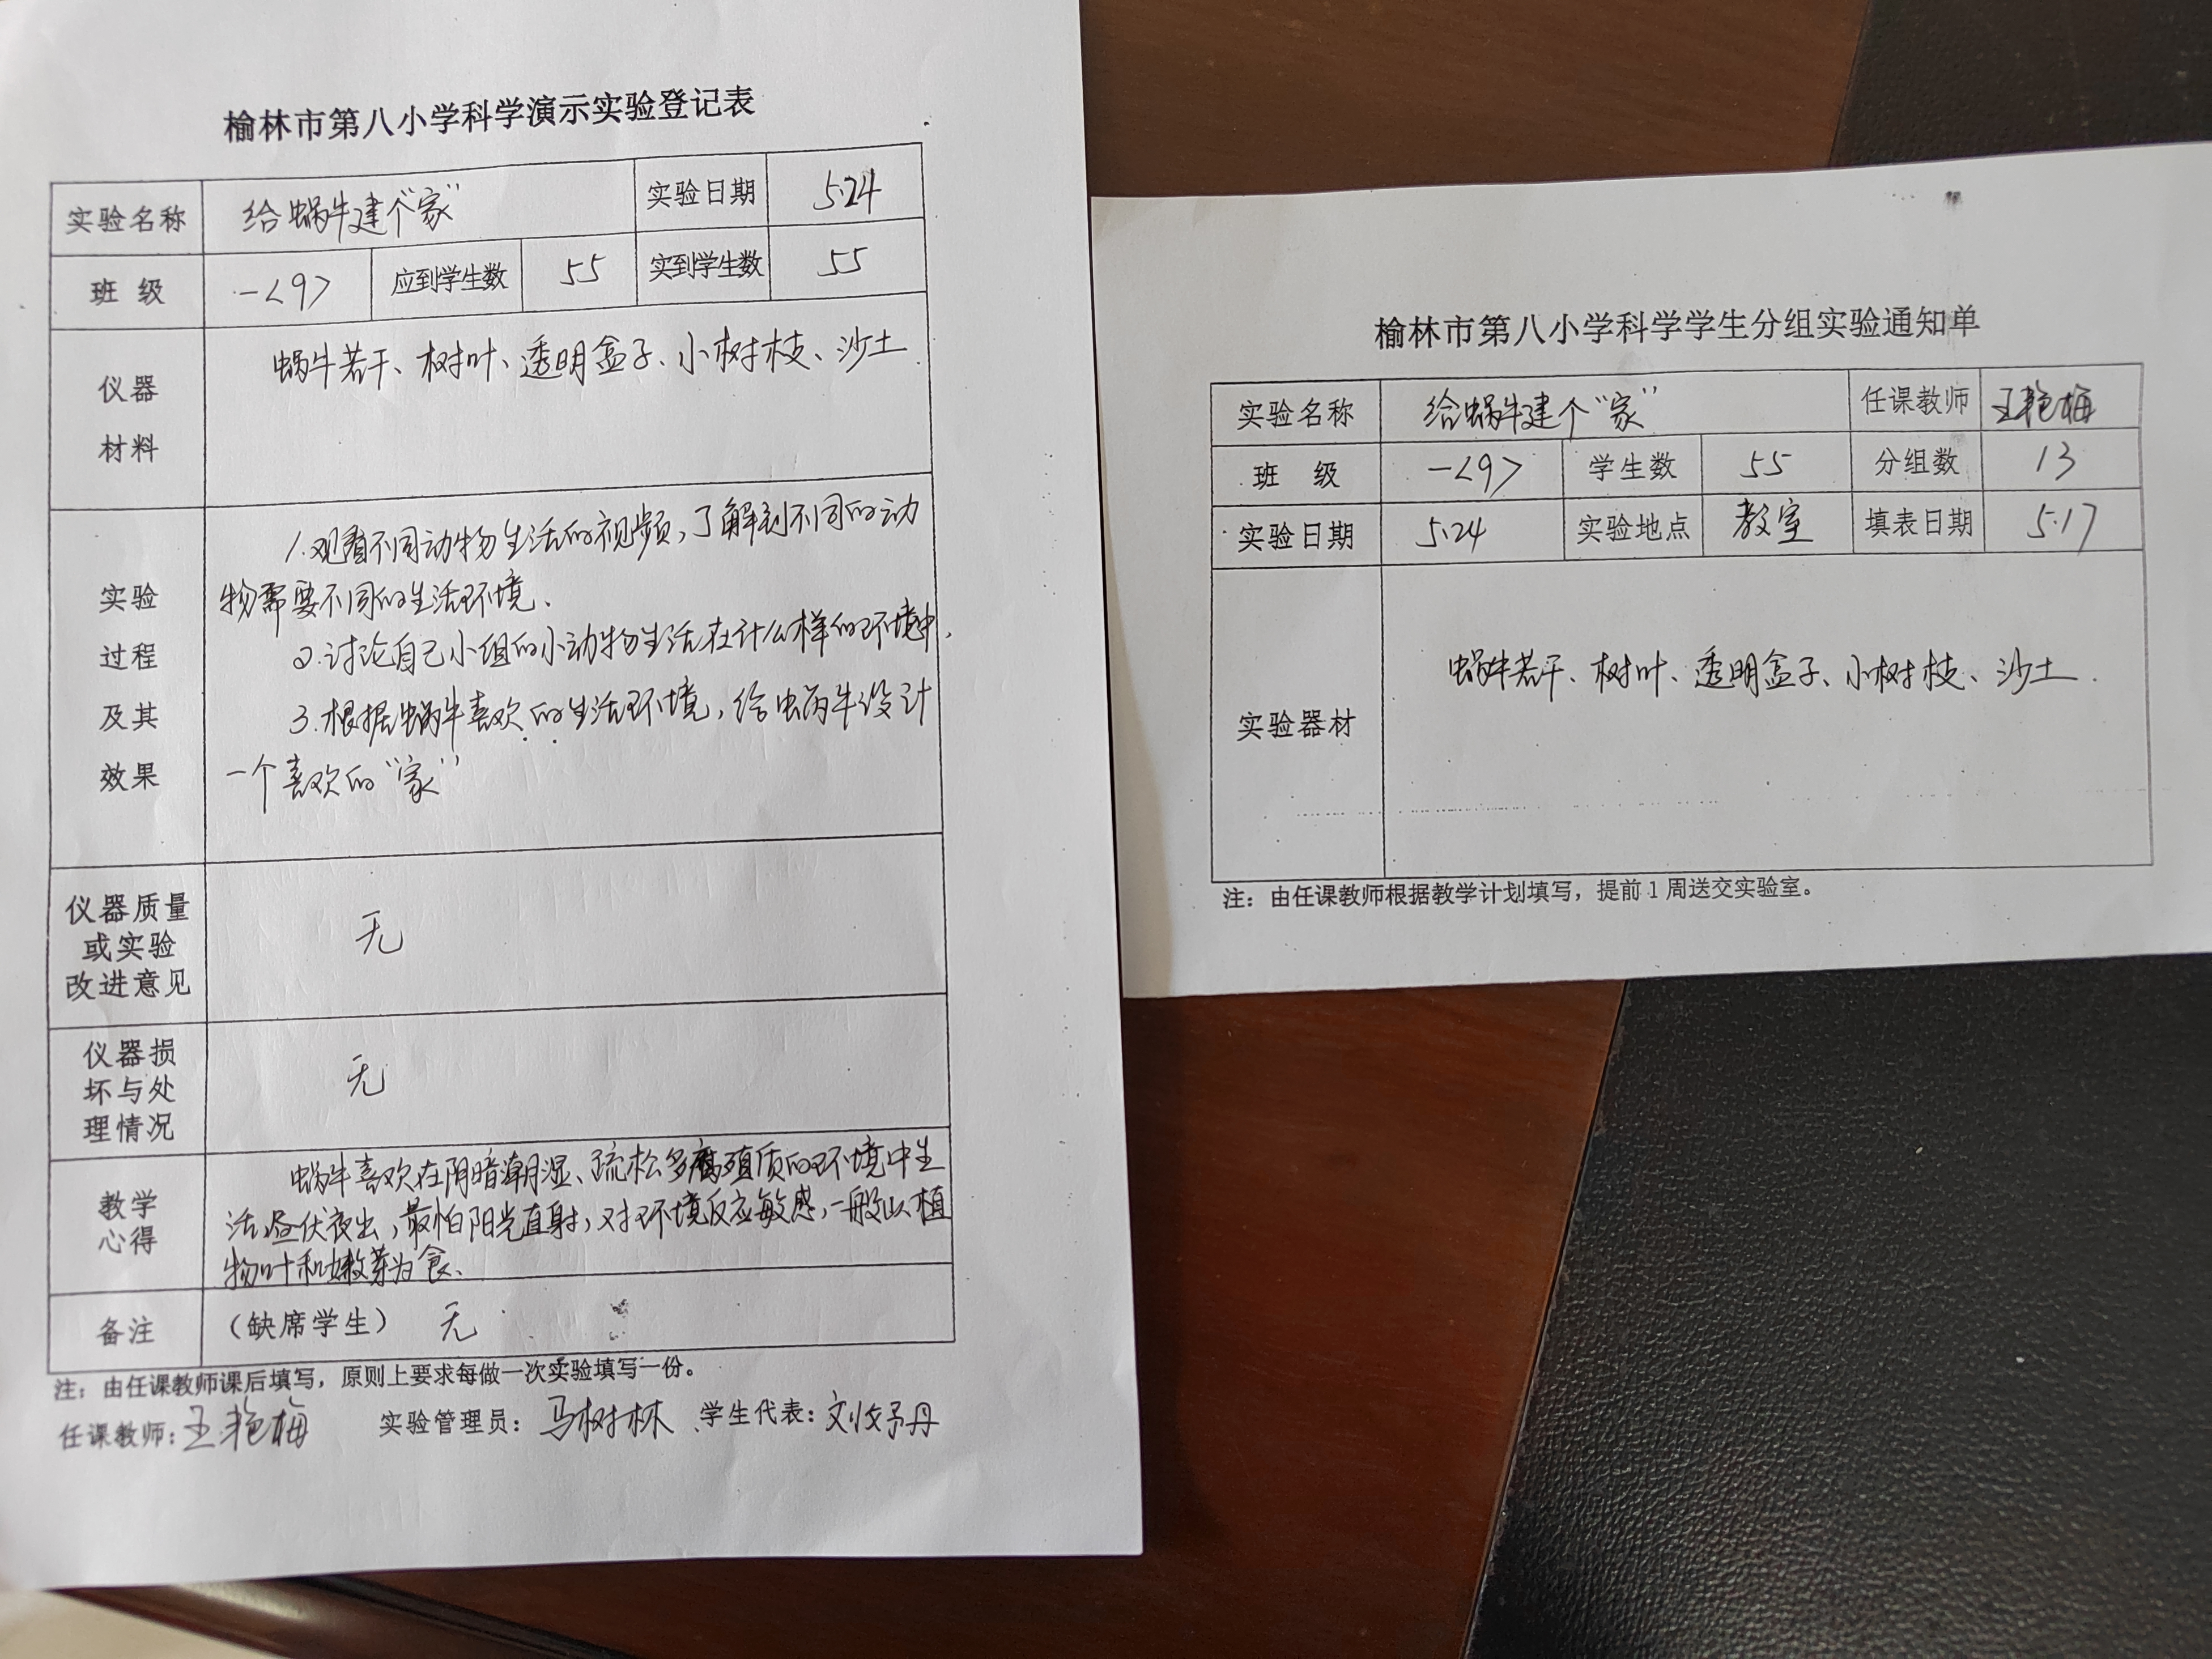 榆林市第八小学科学演示实验登记表
实验名称 给蜗牛建个“家” 实验日期 5.24
班级 一<9> 应到学生数 55 实到学生数 55
仪器
材料
蜗牛若干、树叶、透明盒子、小树枝、沙土
实验
过程
及其
效果
1.观看不同动物生活的视频,了解到不同的动
物需要不同的生活环境.
2.讨论自己小组的小动物生活在什么样的环境中.
3.根据蜗牛喜欢的生活环境,给蜗牛设计
一个喜欢的“家”
仪器质量
或实验
改进意见
无
仪器损
坏与处
理情况
无
教学
心得
蜗牛喜欢在阴暗潮湿、疏松多腐殖质的环境中生
活,昼伏夜出,最怕阳光直射,对环境反应敏感,一般以植
物叶和嫩芽为食.
备注 (缺席学生) 无
注：由任课教师课后填写，原则上要求每做一次实验填写一份。
任课教师:王艳梅 实验管理员：马树林 学生代表：刘予丹
榆林市第八小学科学学生分组实验通知单
实验名称 给蜗牛建个“家” 任课教师 王艳梅
班 级 一<9> 学生数 55 分组数 13
实验日期 5.24 实验地点 教室 填表日期 5.17
实验器材 蜗牛若干、树叶、透明盒子、小树枝、沙土.
注：由任课教师根据教学计划填写，提前1周送交实验室。